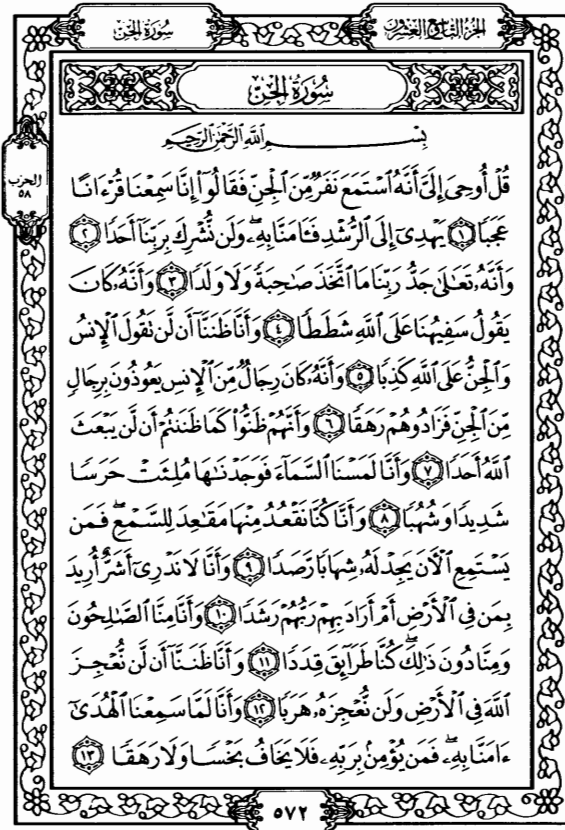 سُورَةُ الجِنّ
الجُزءُ التَّاسِعُ وَالعِشْرُونَ
سُورَةُ الجِنّ
بِسْمِ ٱللَّهِ ٱلرَّحْمَٰنِ ٱلرَّحِيمِ
الحزب
٥٨
قُلْ أُوحِىَ إِلَىَّ أَنَّهُ ٱسْتَمَعَ نَفَرٌ مِّنَ ٱلْجِنِّ فَقَالُوٓا۟ إِنَّا سَمِعْنَا قُرْءَانًا
عَجَبًا ١ يَهْدِىٓ إِلَى ٱلرُّشْدِ فَـَٔامَنَّا بِهِۦ ۖ وَلَن نُّشْرِكَ بِرَبِّنَآ أَحَدًا ٢
وَأَنَّهُۥ تَعَٰلَىٰ جَدُّ رَبِّنَا مَا ٱتَّخَذَ صَٰحِبَةً وَلَا وَلَدًا ٣ وَأَنَّهُۥ كَانَ
يَقُولُ سَفِيهُنَا عَلَى ٱللَّهِ شَطَطًا ٤ وَأَنَّا ظَنَنَّآ أَن لَّن تَقُولَ ٱلْإِنسُ
وَٱلْجِنُّ عَلَى ٱللَّهِ كَذِبًا ٥ وَأَنَّهُۥ كَانَ رِجَالٌ مِّنَ ٱلْإِنسِ يَعُوذُونَ بِرِجَالٍ
مِّنَ ٱلْجِنِّ فَزَادُوهُمْ رَهَقًا ٦ وَأَنَّهُمْ ظَنُّوا۟ كَمَا ظَنَنتُمْ أَن لَّن يَبْعَثَ
ٱللَّهُ أَحَدًا ٧ وَأَنَّا لَمَسْنَا ٱلسَّمَآءَ فَوَجَدْنَٰهَا مُلِئَتْ حَرَسًا
شَدِيدًا وَشُهُبًا ٨ وَأَنَّا كُنَّا نَقْعُدُ مِنْهَا مَقَٰعِدَ لِلسَّمْعِ ۖ فَمَن
يَسْتَمِعِ ٱلْـَٔانَ يَجِدْ لَهُۥ شِهَابًا رَّصَدًا ٩ وَأَنَّا لَا نَدْرِىٓ أَشَرٌّ أُرِيدَ
بِمَن فِى ٱلْأَرْضِ أَمْ أَرَادَ بِهِمْ رَبُّهُمْ رَشَدًا ١٠ وَأَنَّا مِنَّا ٱلصَّٰلِحُونَ
وَمِنَّا دُونَ ذَٰلِكَ ۖ كُنَّا طَرَآئِقَ قِدَدًا ١١ وَأَنَّا ظَنَنَّآ أَن لَّن نُّعْجِزَ
ٱللَّهَ فِى ٱلْأَرْضِ وَلَن نُّعْجِزَهُۥ هَرَبًا ١٢ وَأَنَّا لَمَّا سَمِعْنَا ٱلْهُدَىٰٓ
ءَامَنَّا بِهِۦ ۖ فَمَن يُؤْمِنۢ بِرَبِّهِۦ فَلَا يَخَافُ بَخْسًا وَلَا رَهَقًا ١٣
٥٧٢